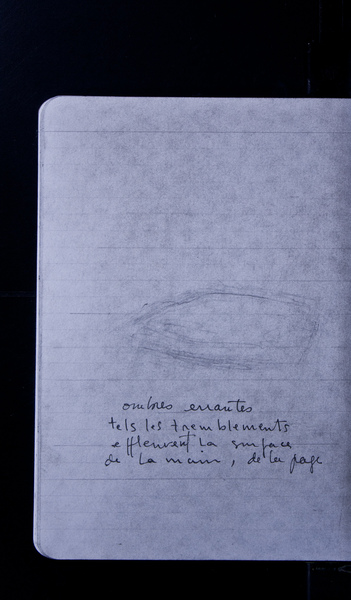 ombres errantes
tels les tremblements
effleurent la surface
de la main, de la page